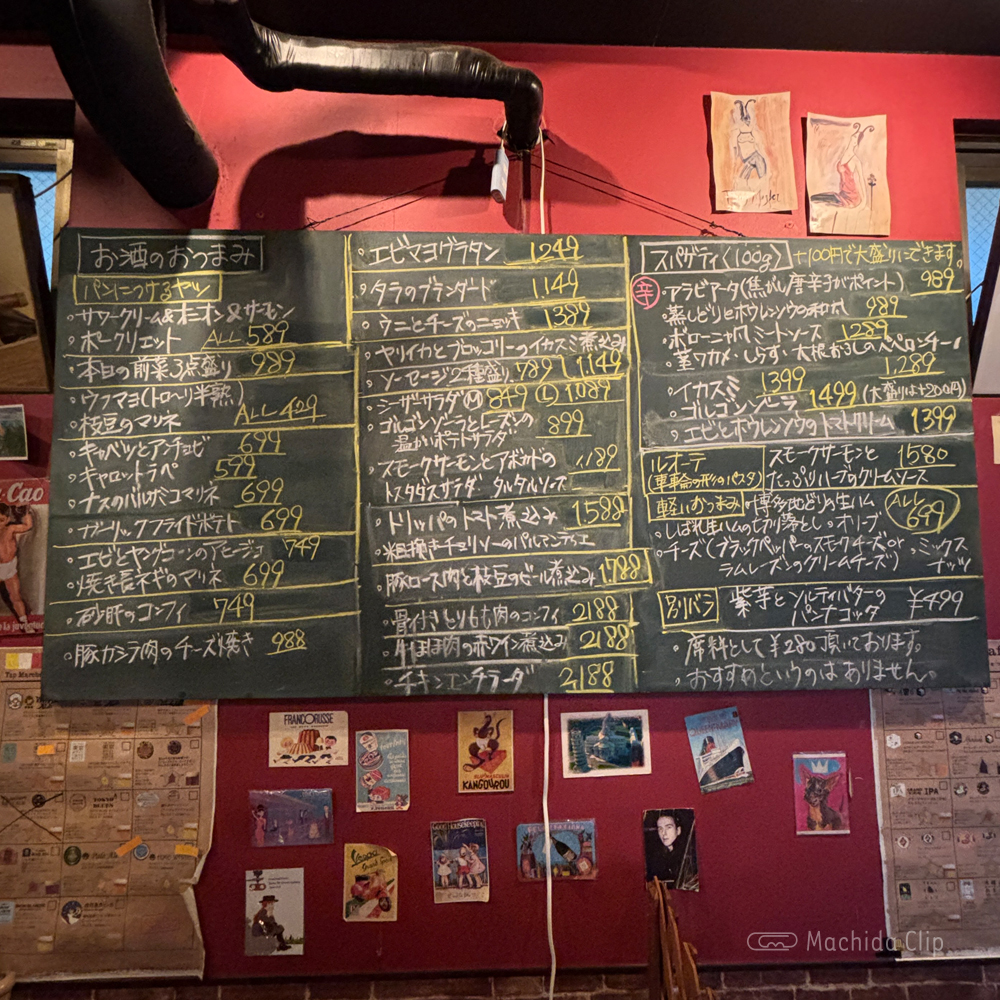 お酒のおつまみ
パンにつけるヤツ
・サワークリーム&オニオン&サーモン
・ポークリエット ALL 589
・本日の前菜3点盛り 989
・ウフマヨ(トロ〜リ半熟)
・枝豆のマリネ ALL 429
・キャベツとアンチョビ 699
・キャロットラペ 599
・ナスのバルサミコマリネ 699
・ガーリックフライドポテト 699
・エビとヤングコーンのアヒージョ 749
・焼き長ネギのマリネ 699
・砂肝のコンフィ 749
・豚カシラ肉のチーズ焼き 988
・エビマヨグラタン 1249
・タラのブランダード 1,149
・ウニとチーズのニョッキ 1389
・ヤリイカとブロッコリーのイカスミ煮込み
・ソーセージ2種盛り 789 1,149
・シーザーサラダ Ⓜ 849 Ⓛ 1,089
・ゴルゴンゾーラとレーズンの
温かいポテトサラダ 899
・スモークサーモンとアボカドの
トスタダスサラダ タルタルソース 1189
・トリッパのトマト煮込み 1,588
・粗挽きチョリソーのパルマンティエ
・豚ロース肉と枝豆のビール煮込み 1,788
・骨付きとりもも肉のコンフィ 2188
・牛ほほ肉の赤ワイン煮込み 2188
・チキンエンチラーダ 2,188
スパゲティ〈100g〉 +100円で大盛りにできます。
辛 アラビアータ(焦がし唐辛子がポイント) 989
・蒸しどりとホウレンソウの和風 989
・ボローニャ風ミートソース 1289
・茎ワカメ・しらす・大根おろしのペペロンチーノ 1,289
・イカスミ 1399
・ゴルゴンゾーラ 1499 (大盛りは+200円)
・エビとホウレンソウのトマトクリーム 1399
ルオーテ
(車輪の形のパスタ)
スモークサーモンと 1580
たっぷりハーブのクリームソース
軽いおつまみ ・博多地どりの生ハム ALL 699
・しばれ生ハムの切り落とし ・オリーブ
・チーズ(ブラックペッパーのスモークチーズor
ラムレーズンのクリームチーズ) ・ミックスナッツ
別バラ 紫芋とソルティバターの
パンナコッタ ¥499
・席料として¥280頂いております。
・おすすめというのはありません。
FRANCORUSSE
KANGOUROU
Cao
IPA
Machida Clip